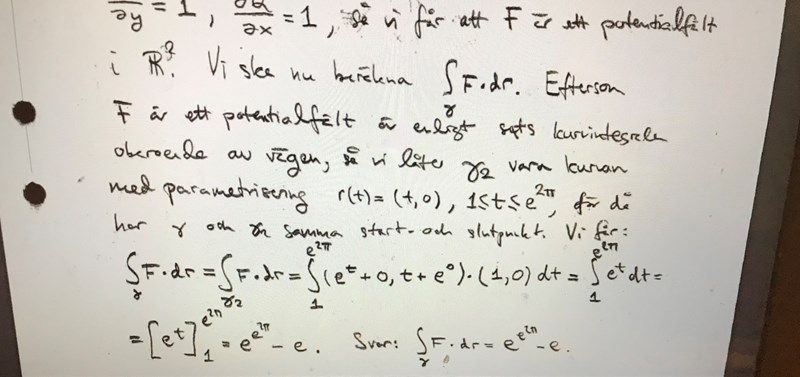 ∂y = 1, ∂Q/∂x = 1, så vi får att F är ett potentialfält
i ℝ². Vi ska nu beräkna ∫_γ F·dr. Eftersom
F är ett potentialfält är enligt sats kurvintegralen
oberoende av vägen, så vi låter γ₂ vara kurvan
med parametrisering r(t) = (t,0), 1≤t≤e^{2π}, för då
har γ och γ₂ samma start- och slutpunkt. Vi får:
∫_γ F·dr = ∫_{γ₂} F·dr = ∫_1^{e^{2π}} (e^t + 0, t + e^0)·(1,0) dt = ∫_1^{e^{2π}} e^t dt =
= [e^t]_1^{e^{2π}} = e^{e^{2π}} - e. Svar: ∫_γ F·dr = e^{e^{2π}} - e.